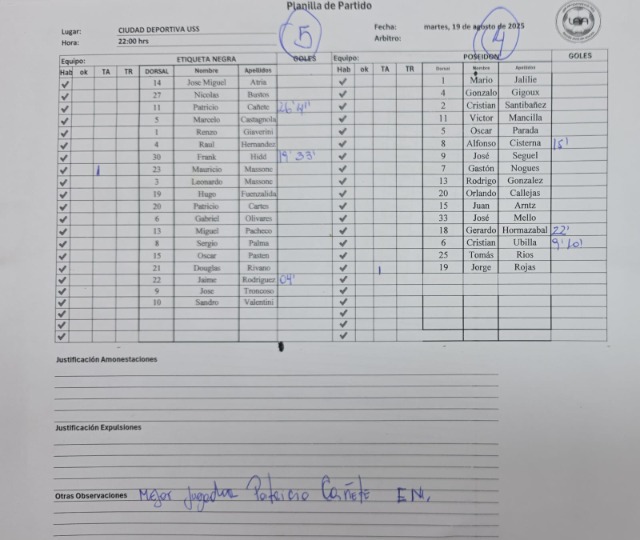 Planilla de Partido
Lugar: CIUDAD DEPORTIVA USS Fecha: martes, 19 de agosto de 2025
Hora: 22:00 hrs Arbitro:
5 4
Equipo: ETIQUETA NEGRA GOLES Equipo: POSEIDON GOLES
Hab ok TA TR DORSAL Nombre Apellidos Hab ok TA TR Dorsal Nombre Apellidos
✓ 14 Jose Miguel Atria ✓ 1 Mario Jalilie
✓ 27 Nicolas Bustos ✓ 4 Gonzalo Gigoux
✓ 11 Patricio Cañete 26' 41' ✓ 2 Cristian Santibañez
✓ 5 Marcelo Castagnola ✓ 11 Victor Mancilla
✓ 1 Renzo Gieverini ✓ 5 Oscar Parada
✓ 4 Raul Hernandez ✓ 8 Alfonso Cisterna 15'
✓ 30 Frank Hidd 19' 33' ✓ 9 José Seguel
✓ 1 23 Mauricio Massone ✓ 7 Gastón Nogues
✓ 3 Leonardo Massone ✓ 13 Rodrigo Gonzalez
✓ 19 Hugo Fuenzalida ✓ 20 Orlando Callejas
✓ 20 Patricio Cartes ✓ 15 Juan Arntz
✓ 6 Gabriel Olivares ✓ 33 José Mello
✓ 13 Miguel Pacheco ✓ 18 Gerardo Hormazabal 22'
✓ 8 Sergio Palma ✓ 6 Cristian Ubilla 9' 10'
✓ 15 Oscar Pasten ✓ 25 Tomás Rios
✓ 21 Douglas Rivano ✓ 1 19 Jorge Rojas
✓ 22 Jaime Rodriguez 04' ✓
✓ 9 Jose Troncoso ✓
✓ 10 Sandro Valentini ✓
✓ ✓
✓ ✓
✓ ✓
Justificación Amonestaciones
Justificación Expulsiones
Otras Observaciones Mejor Jugador Patricio Cañete EN.